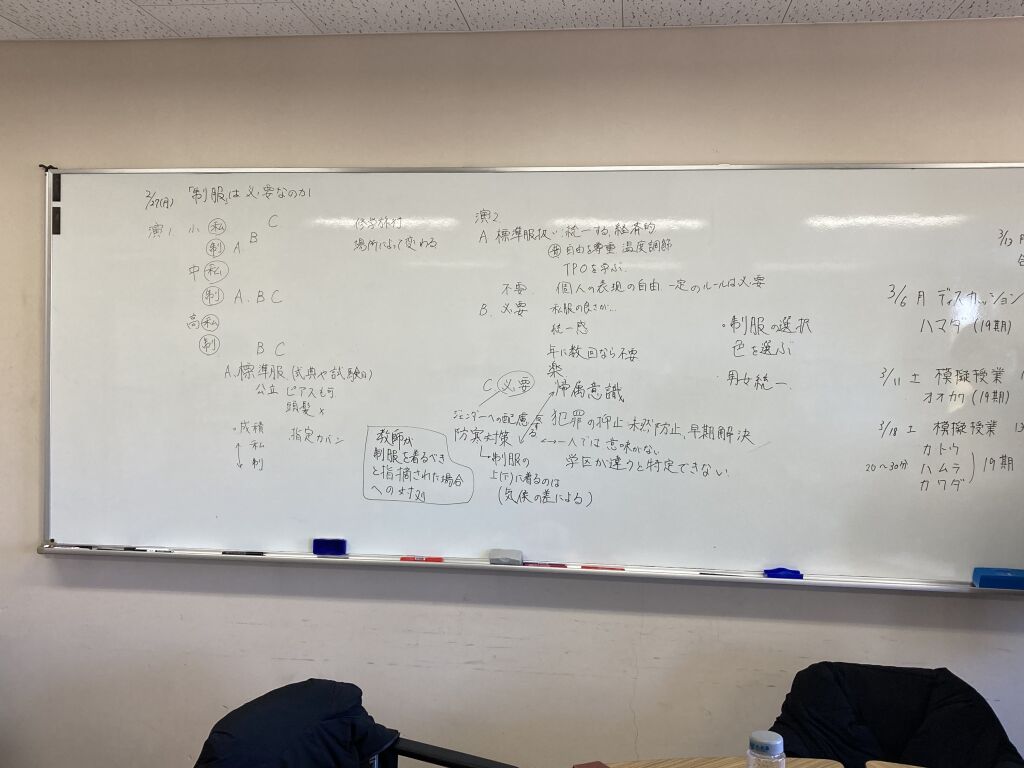 2/27(月) 「制服」は必要なのか
演1. 小 私 C
B
制 A.
中 私
制 A. B C
高 私
制 B C
A. 標準服 (式典や試験日)
公立 ピアスも可
頭髪 ×
・成績 指定カバン
↕ 私
制
修学旅行
場所によって変わる
教師が
制服を着るべき
と指摘された場合
への対刻
演2
A 標準服扱い: 統一する, 経済的
自由を尊重 温度調節
TPOを学ぶ.
不要. 個人の表現の自由. 一定のルールは必要
B. 必要 私服の良さが…
統一感
年に数回なら不要
楽
C 必要 帰属意識
ジェンダーへの配慮
防寒対策
↳制服の
上(下)に着るのは
(気候の差による)
犯罪の抑止 未然防止, 早期解決
←→一人では意味がない
学区が違うと特定できない
・制服の選択
色を選ぶ
男女統一.
3/13
3/6 月 ディスカッション
ハマダ (19期)
3/11 土 模擬授業
オオカワ (19期)
3/18 土 模擬授業
カトウ
20〜30分 ハムラ 19期
カワダ